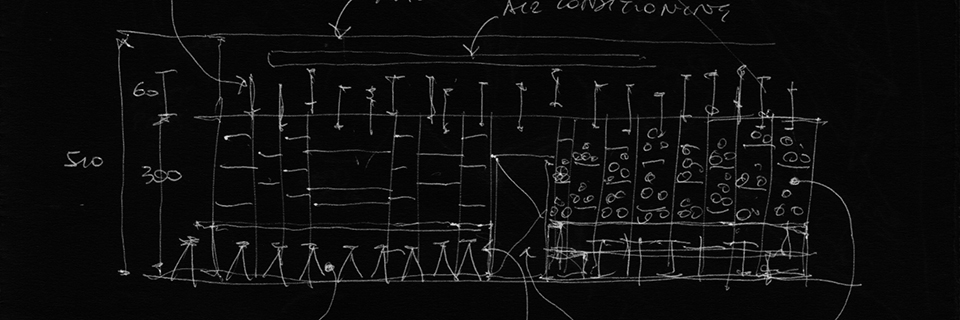 AIR CONDITIONING
60
510
300